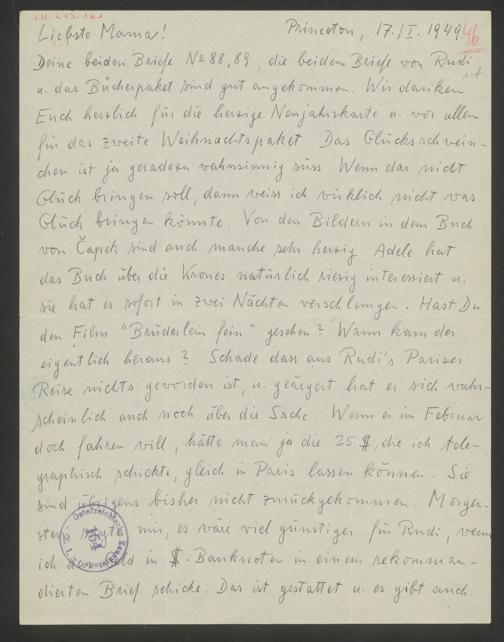 I.N. 213.161
Liebste Mama! Princeton, 17./I. 1949.
46
Deine beiden Briefe No 88, 89, die beiden Briefe von Rudi
u. das Bücherpaket sind gut angekommen. Wir danken
Euch herzlich für die herzige Neujahrskarte u. vor allem
für das zweite Weihnachtspaket. Das Glücksschwein-
chen ist ja geradezu wahnsinnig süss. Wenn das nicht
Glück bringen soll, dann weiss ich wirklich nicht was
Glück bringen könnte. Von den Bildern in dem Buch
von Čapek sind auch manche sehr herzig. Adele hat
das Buch über die Krones natürlich riesig interessiert u.
sie hat es sofort in zwei Nächten verschlungen. Hast Du
den Film "Brüderlein fein" gesehen? Wann kam der
eigentlich heraus? Schade dass aus Rudi's Pariser
Reise nichts geworden ist, u. geärgert hat er sich wahr-
scheinlich auch noch über die Sache. Wenn er im Februar
doch fahren will, hätte man ja die 25 $, die ich tele-
graphisch schickte, gleich in Paris lassen können. Sie
sind übrigens bisher nicht zurückgekommen. Morgen-
stern mir, es wäre viel günstiger für Rudi, wenn
ich in $-Banknoten in einem rekomman-
dierten Brief schicke. Das ist gestattet u. es gibt auch